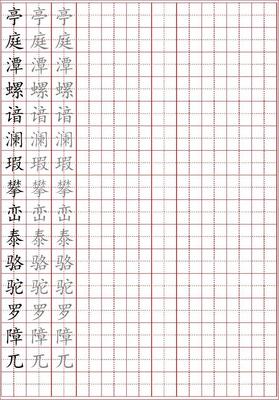 亭亭亭
庭庭庭
潭潭潭
螺螺螺
谙谙谙
澜澜澜
瑕瑕瑕
攀攀攀
峦峦峦
泰泰泰
骆骆骆
驼驼驼
罗罗罗
障障障
兀兀兀